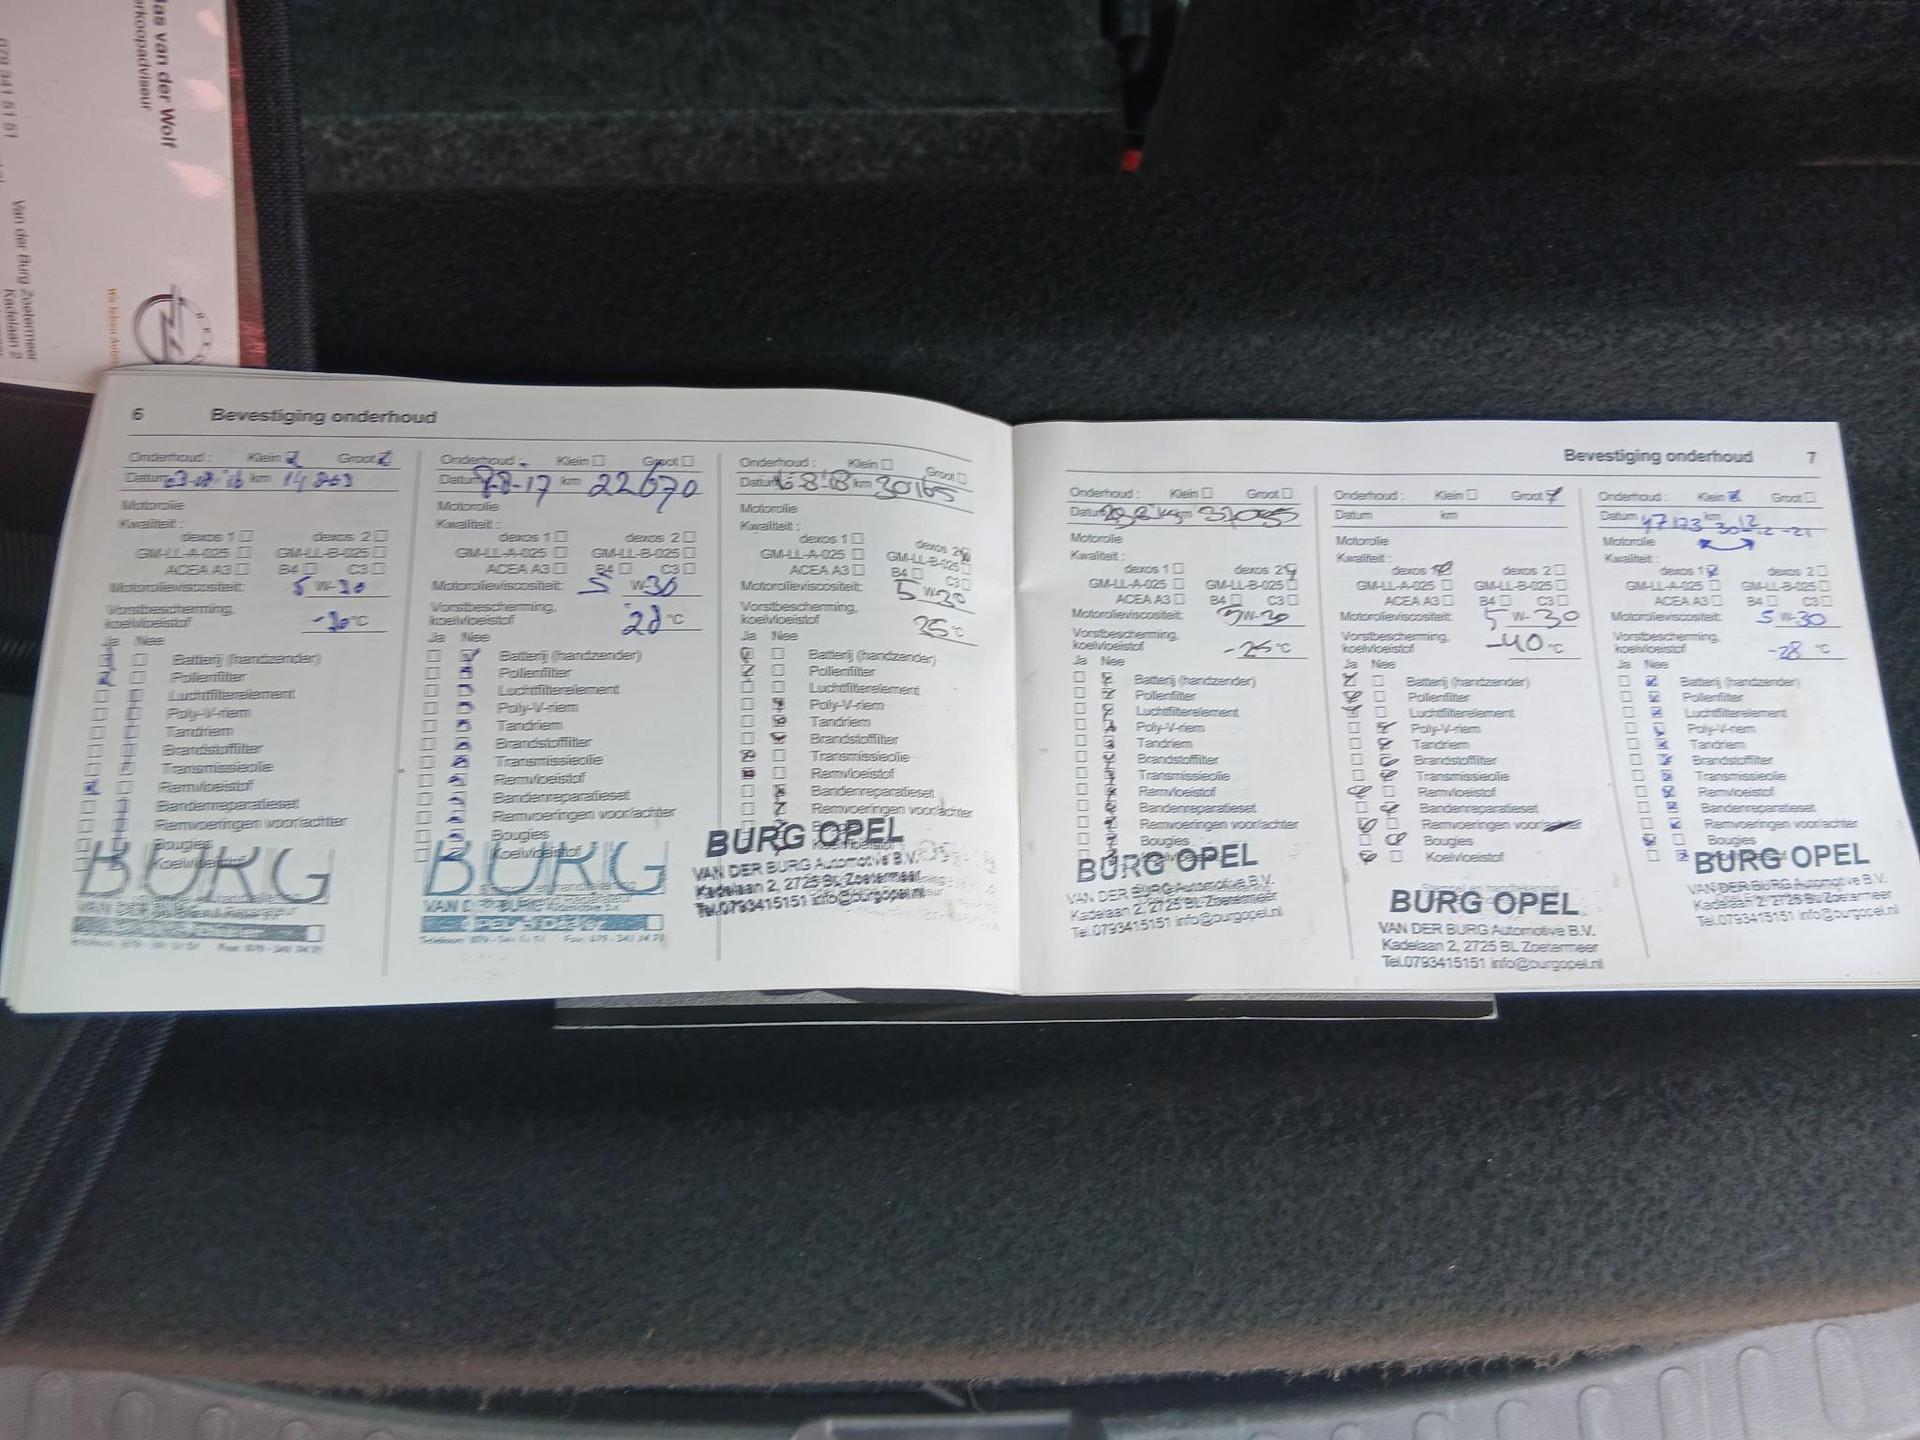 as van der Wolf
rkoopadviseur
079 341 51 51
Van der Burg Zoetermeer
Kadelaan 2
OPEL
6 Bevestiging onderhoud
Onderhoud : Klein Groot
Datum km
Motorolie
Kwaliteit :
dexos 1 dexos 2
GM-LL-A-025 GM-LL-B-025
ACEA A3 B4 C3
Motorolieviscositeit: 5 W-30
Vorstbescherming,
koelvloeistof -30 °C
Ja Nee
Batterij (handzender)
Pollenfilter
Luchtfilterelement
Poly-V-riem
Tandriem
Brandstoffilter
Transmissieolie
Remvloeistof
Bandenreparatieset
Remvoeringen voor/achter
Bougies
Koelvloeistof
BURG
Onderhoud : Klein Groot
Datum 8-8-17 km 22670
Motorolie
Kwaliteit :
dexos 1 dexos 2
GM-LL-A-025 GM-LL-B-025
ACEA A3 B4 C3
Motorolieviscositeit: 5 W-30
Vorstbescherming,
koelvloeistof °C
Ja Nee
Batterij (handzender)
Pollenfilter
Luchtfilterelement
Poly-V-riem
Tandriem
Brandstoffilter
Transmissieolie
Remvloeistof
Bandenreparatieset
Remvoeringen voor/achter
Bougies
Koelvloeistof
BURG
Onderhoud : Klein Groot
Datum 6-8-18 km 30165
Motorolie
Kwaliteit :
dexos 1 dexos 2
GM-LL-A-025 GM-LL-B-025
ACEA A3 B4 C3
Motorolieviscositeit: 5 W-30
Vorstbescherming,
koelvloeistof 25 °C
Ja Nee
Batterij (handzender)
Pollenfilter
Luchtfilterelement
Poly-V-riem
Tandriem
Brandstoffilter
Transmissieolie
Remvloeistof
Bandenreparatieset
Remvoeringen voor/achter
BURG OPEL
VAN DER BURG Automotive B.V.
Kadelaan 2, 2725 BL Zoetermeer
Tel.0793415151 info@burgopel.nl
Bevestiging onderhoud 7
Onderhoud : Klein Groot
Datum km
Motorolie
Kwaliteit :
dexos 1 dexos 2
GM-LL-A-025 GM-LL-B-025
ACEA A3 B4 C3
Motorolieviscositeit: 5W-30
Vorstbescherming,
koelvloeistof -25 °C
Ja Nee
Batterij (handzender)
Pollenfilter
Luchtfilterelement
Poly-V-riem
Tandriem
Brandstoffilter
Transmissieolie
Remvloeistof
Bandenreparatieset
Remvoeringen voor/achter
Bougies
BURG OPEL
VAN DER BURG Automotive B.V.
Kadelaan 2, 2725 BL Zoetermeer
Tel.0793415151 info@burgopel.nl
Onderhoud : Klein Groot
Datum km
Motorolie
Kwaliteit :
dexos 1 dexos 2
GM-LL-A-025 GM-LL-B-025
ACEA A3 B4 C3
Motorolieviscositeit: 5 W-30
Vorstbescherming,
koelvloeistof -40 °C
Ja Nee
Batterij (handzender)
Pollenfilter
Luchtfilterelement
Poly-V-riem
Tandriem
Brandstoffilter
Transmissieolie
Remvloeistof
Bandenreparatieset
Remvoeringen voor/achter
Bougies
Koelvloeistof
BURG OPEL
VAN DER BURG Automotive B.V.
Kadelaan 2, 2725 BL Zoetermeer
Tel.0793415151 info@burgopel.nl
Onderhoud : Klein Groot
Datum 47123 km 30-12-21
Motorolie
Kwaliteit :
dexos 1 dexos 2
GM-LL-A-025 GM-LL-B-025
ACEA A3 B4 C3
Motorolieviscositeit: 5 W-30
Vorstbescherming,
koelvloeistof -28 °C
Ja Nee
Batterij (handzender)
Pollenfilter
Luchtfilterelement
Poly-V-riem
Tandriem
Brandstoffilter
Transmissieolie
Remvloeistof
Bandenreparatieset
Remvoeringen voor/achter
Bougies
BURG OPEL
VAN DER BURG Automotive B.V.
Kadelaan 2, 2725 BL Zoetermeer
Tel.0793415151 info@burgopel.nl